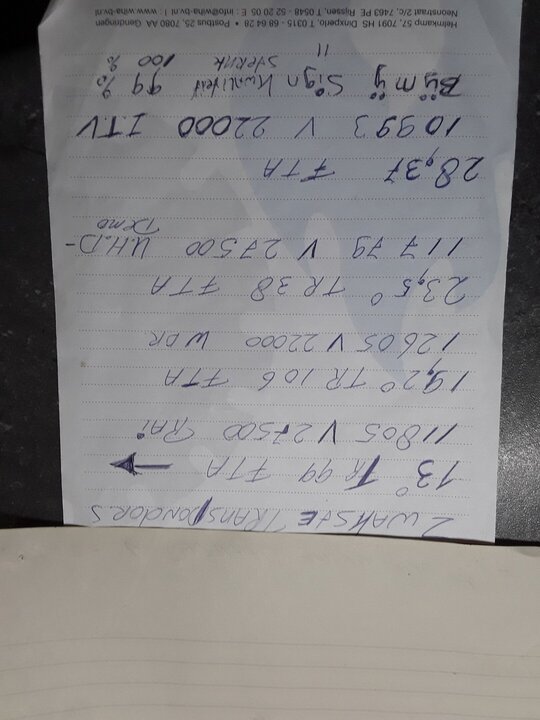 ZWAKSTE TRANSPONDORS
13° TR 99 FTA ←
11805 V 27500 RAi
19,2° TR 106 FTA
12605 V 22000 WDR
23,5° TR 38 FTA
11779 V 27500 U.H.D-
Demo
28,37 FTA
10993 V 22000 ITV
Bÿ mÿ Sign Kwaliteit 99 %
" Sterkte 100 %
Helmkamp 57, 7091 HS Dinxperlo, T 0315 - 68 64 28 • Postbus 25, 7080 AA Gendringen
Neonstraat 2/c, 7463 PE Rijssen, T 0548 - 52 20 05 E info@wiha-bv.nl I www.wiha-bv.nl